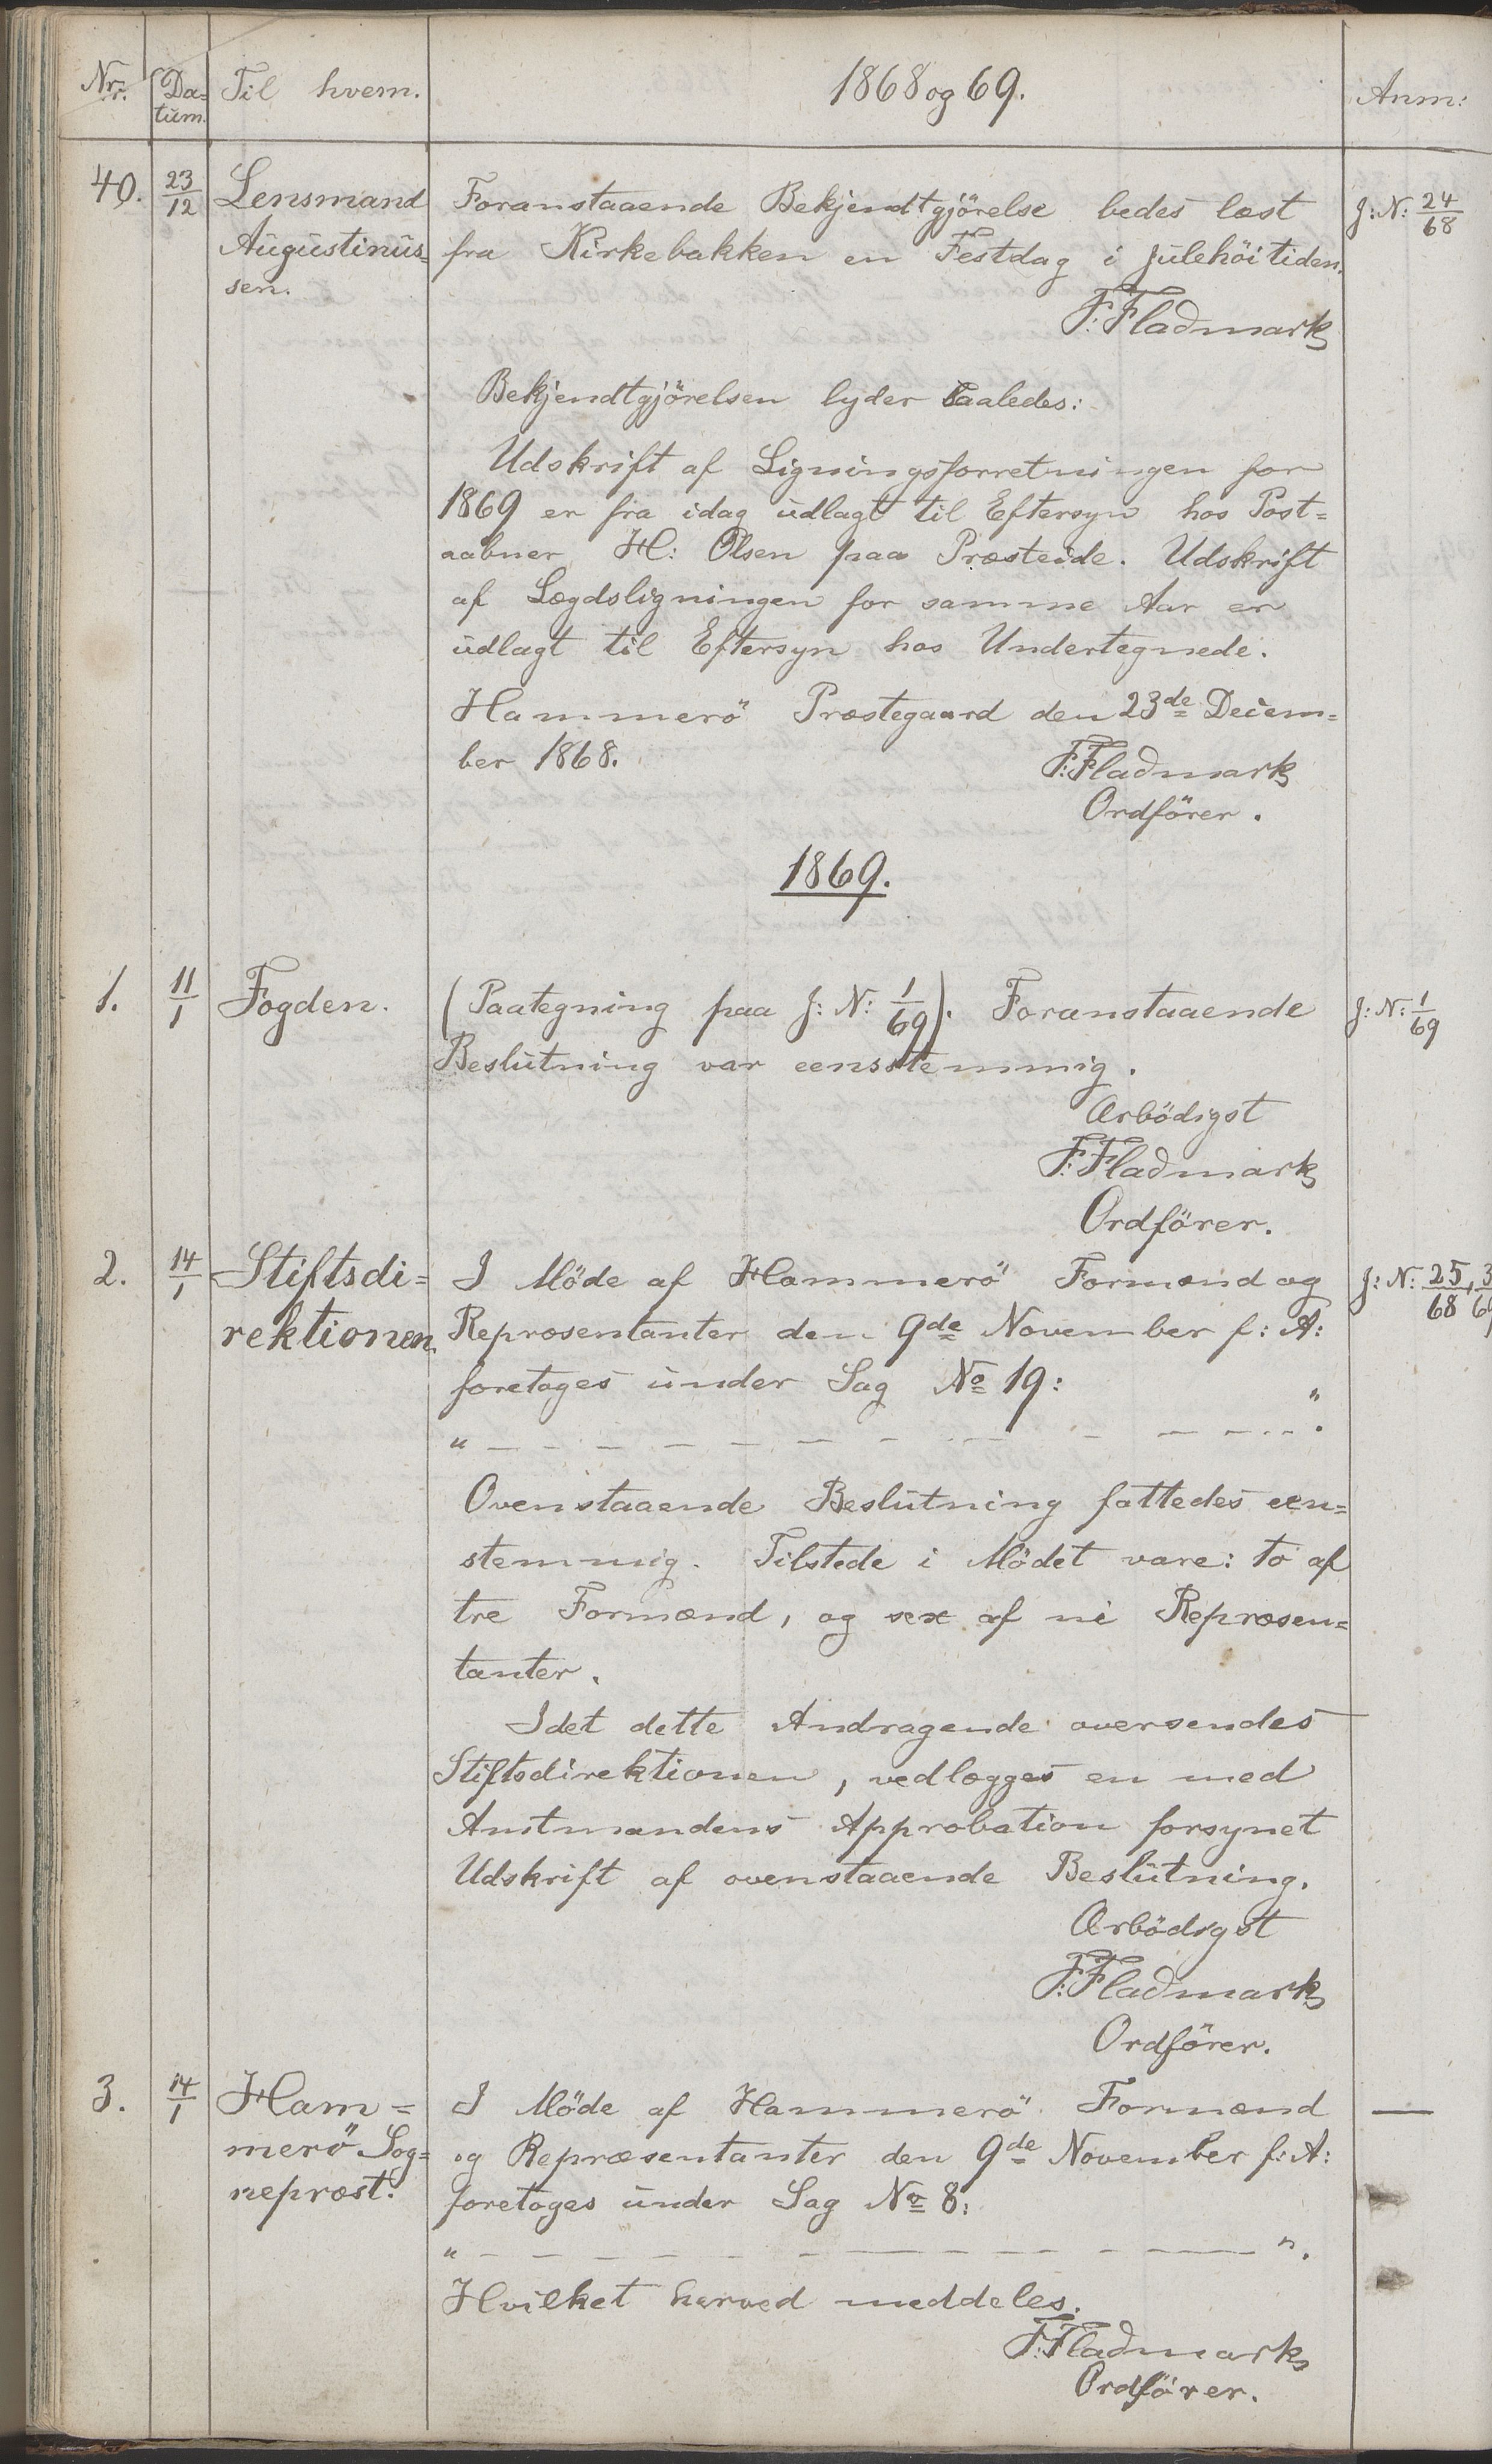 Nr. Da= Til hvem. 1868 og 69. Anm:
tum.
40. 23/12 Lensmand Foranstaaende Bekjendtgjörelse bedes læst J: N: 24/68
Augustinus= fra Kirkebakken en Festdag i Julehöitiden.
sen. F: Fladmark
Bekjendtgjörelsen lyder saaledes:
Udskrift af Ligningsforretningen for
1869 er fra idag udlagt til Eftersyn hos Post=
aabner H: Olsen paa Præsteide. Udskrift
af Lægdsligningen for samme Aar er
udlagt til Eftersyn hos Undertegnede.
Hammerö Præstegaard den 23de Decem=
ber 1868. F: Fladmark
Ordförer.
1869.
1. 11/1 Fogden. (Paategning paa J: N: 1/69). Foranstaaende J: N: 1/69
Beslutning var eensstemmig.
Ærbödigst
F: Fladmark
Ordförer.
2. 14/1 Stiftsdi= I Möde af Hammerö Formænd og J: N: 25/68, 3/69
rektionen. Repræsentanter den 9de November f: A:
foretoges under Sag No 19:
" — — — — — — — — — — ".
Ovenstaaende Beslutning fattedes een=
stemmig. Tilstede i Mödet vare: to af
tre Formænd, og sex af ni Repræsen=
tanter.
Idet dette Andragende oversendes
Stiftsdirektionen, vedlægges en med
Amtmandens Approbation forsynet
Udskrift af ovenstaaende Beslutning.
Ærbödigst
F: Fladmark
Ordförer.
3. 14/1 Ham= I Möde af Hammerö Formænd —
merö Sog= og Repræsentanter den 9de November f: A:
nepræst. foretoges under Sag No 8:
" — — — — — — — — — — ".
Hvilket herved meddeles.
F: Fladmark
Ordförer.